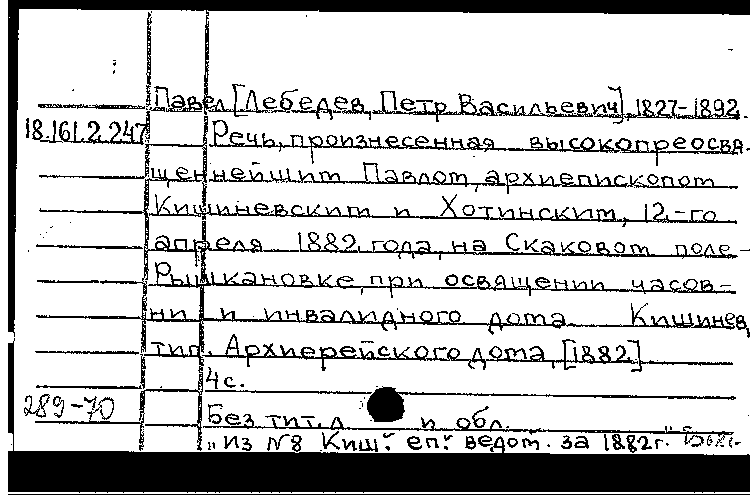 Павел [Лебедев, Петр Васильевич], 1827-1892.
18.161.2.247 Речь, произнесенная высокопреосвя-
щеннейшим Павлом, архиепископом
Кишиневским и Хотинским, 12-го
апреля 1882 года, на Скаковом поле-
Рышкановке, при освящении часов-
ни и инвалидного дома. Кишинев,
тип. Архиерейского дома, [1882]
4с.
289-70 Без тит. л. и обл.
"из №8 Киш. еп. ведом. за 1882г."